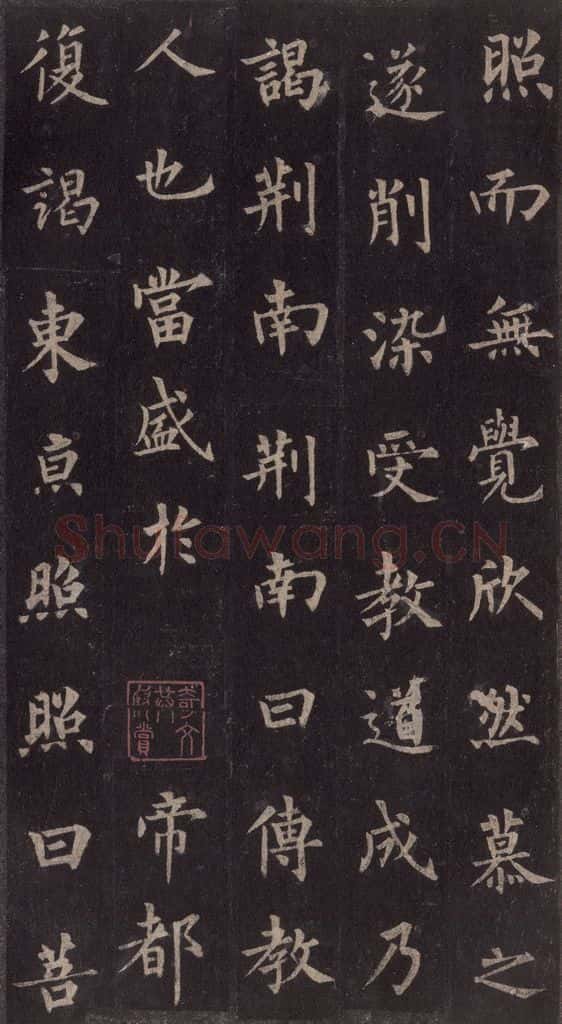 照而無覺欣然慕之
遂削染受教道成乃
謁荆南荆南曰傳教
人也當盛於 帝都
復謁東亰照照曰菩
Shufawang.CN